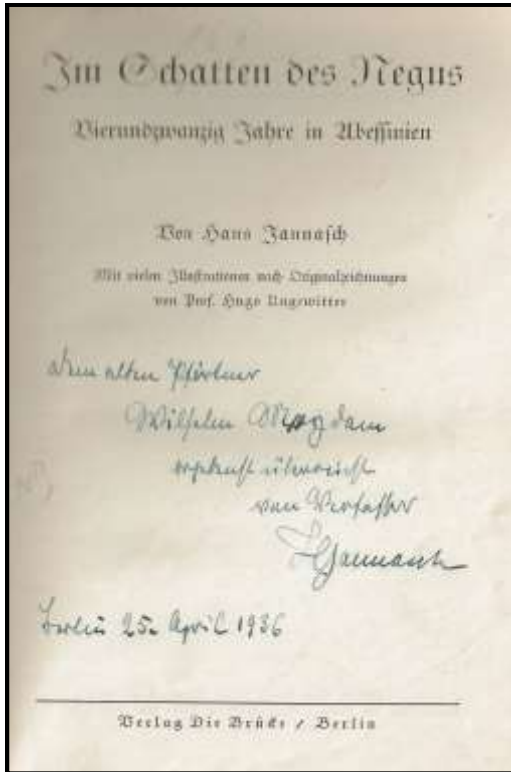 Im Schatten des Negus
Vierundzwanzig Jahre in Abessinien
Von Hans Jannasch
Mit vielen Illustrationen nach Originalzeichnungen
von Prof. Hugo Ungewitter
Dem alten Pförtner
Wilhelm
ergebenst überreicht
vom Verfasser
HJannasch
Berlin 25. April 1936
Verlag Die Brücke / Berlin